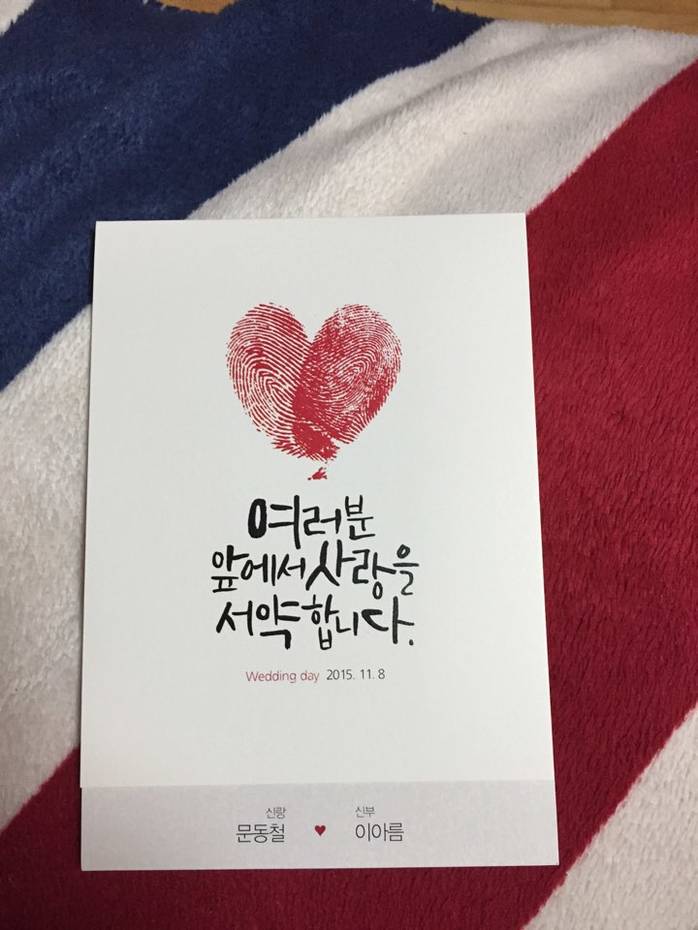 여러분
앞에서 사랑을
서약합니다.
Wedding day 2015. 11. 8
신랑 신부
문동철 ♥ 이아름